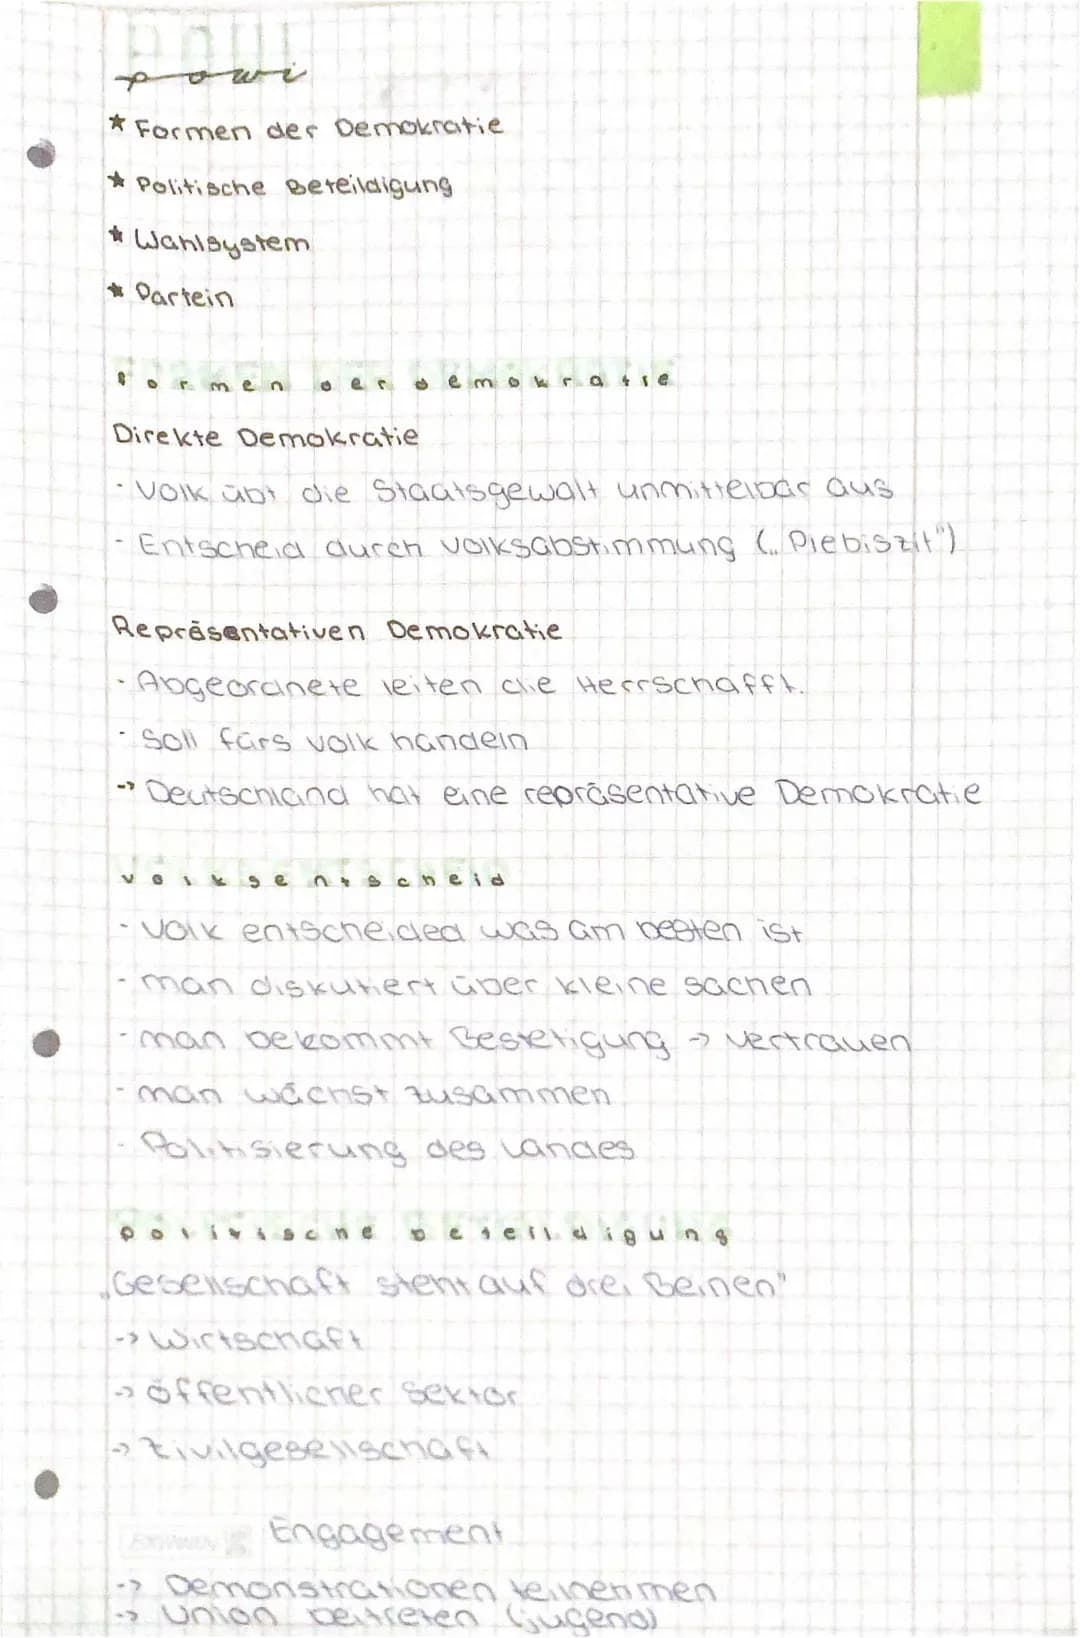 powi
* Formen der Demokratie
* Politische Beteildigung
* Wahlsystem
* Partein
formen der demokratie
Direkte Demokratie
- Volk übt die Staatsgewalt unmittelbar aus
- Entscheid durch volksabstimmung („Plebiszit")
Repräsentativen Demokratie
- Abgeordnete leiten die Herrschafft.
- Soll fürs volk handeln
-> Deutschland hat eine repräsentative Demokratie
volksentscheid
- Volk entscheided was am besten ist
- man diskutiert über kleine sachen
- man bekommt Bestetigung -> vertrauen
- man wächst zusammen
- Politisierung des Landes
politische beteildigung
„Gesellschaft steht auf drei Beinen"
-> Wirtschaft
-> öffentlicher Sektor
-> Zivilgesellschaft
Engagement
-> Demonstrationen teilnehmen
-> Union beitreten (jugend)